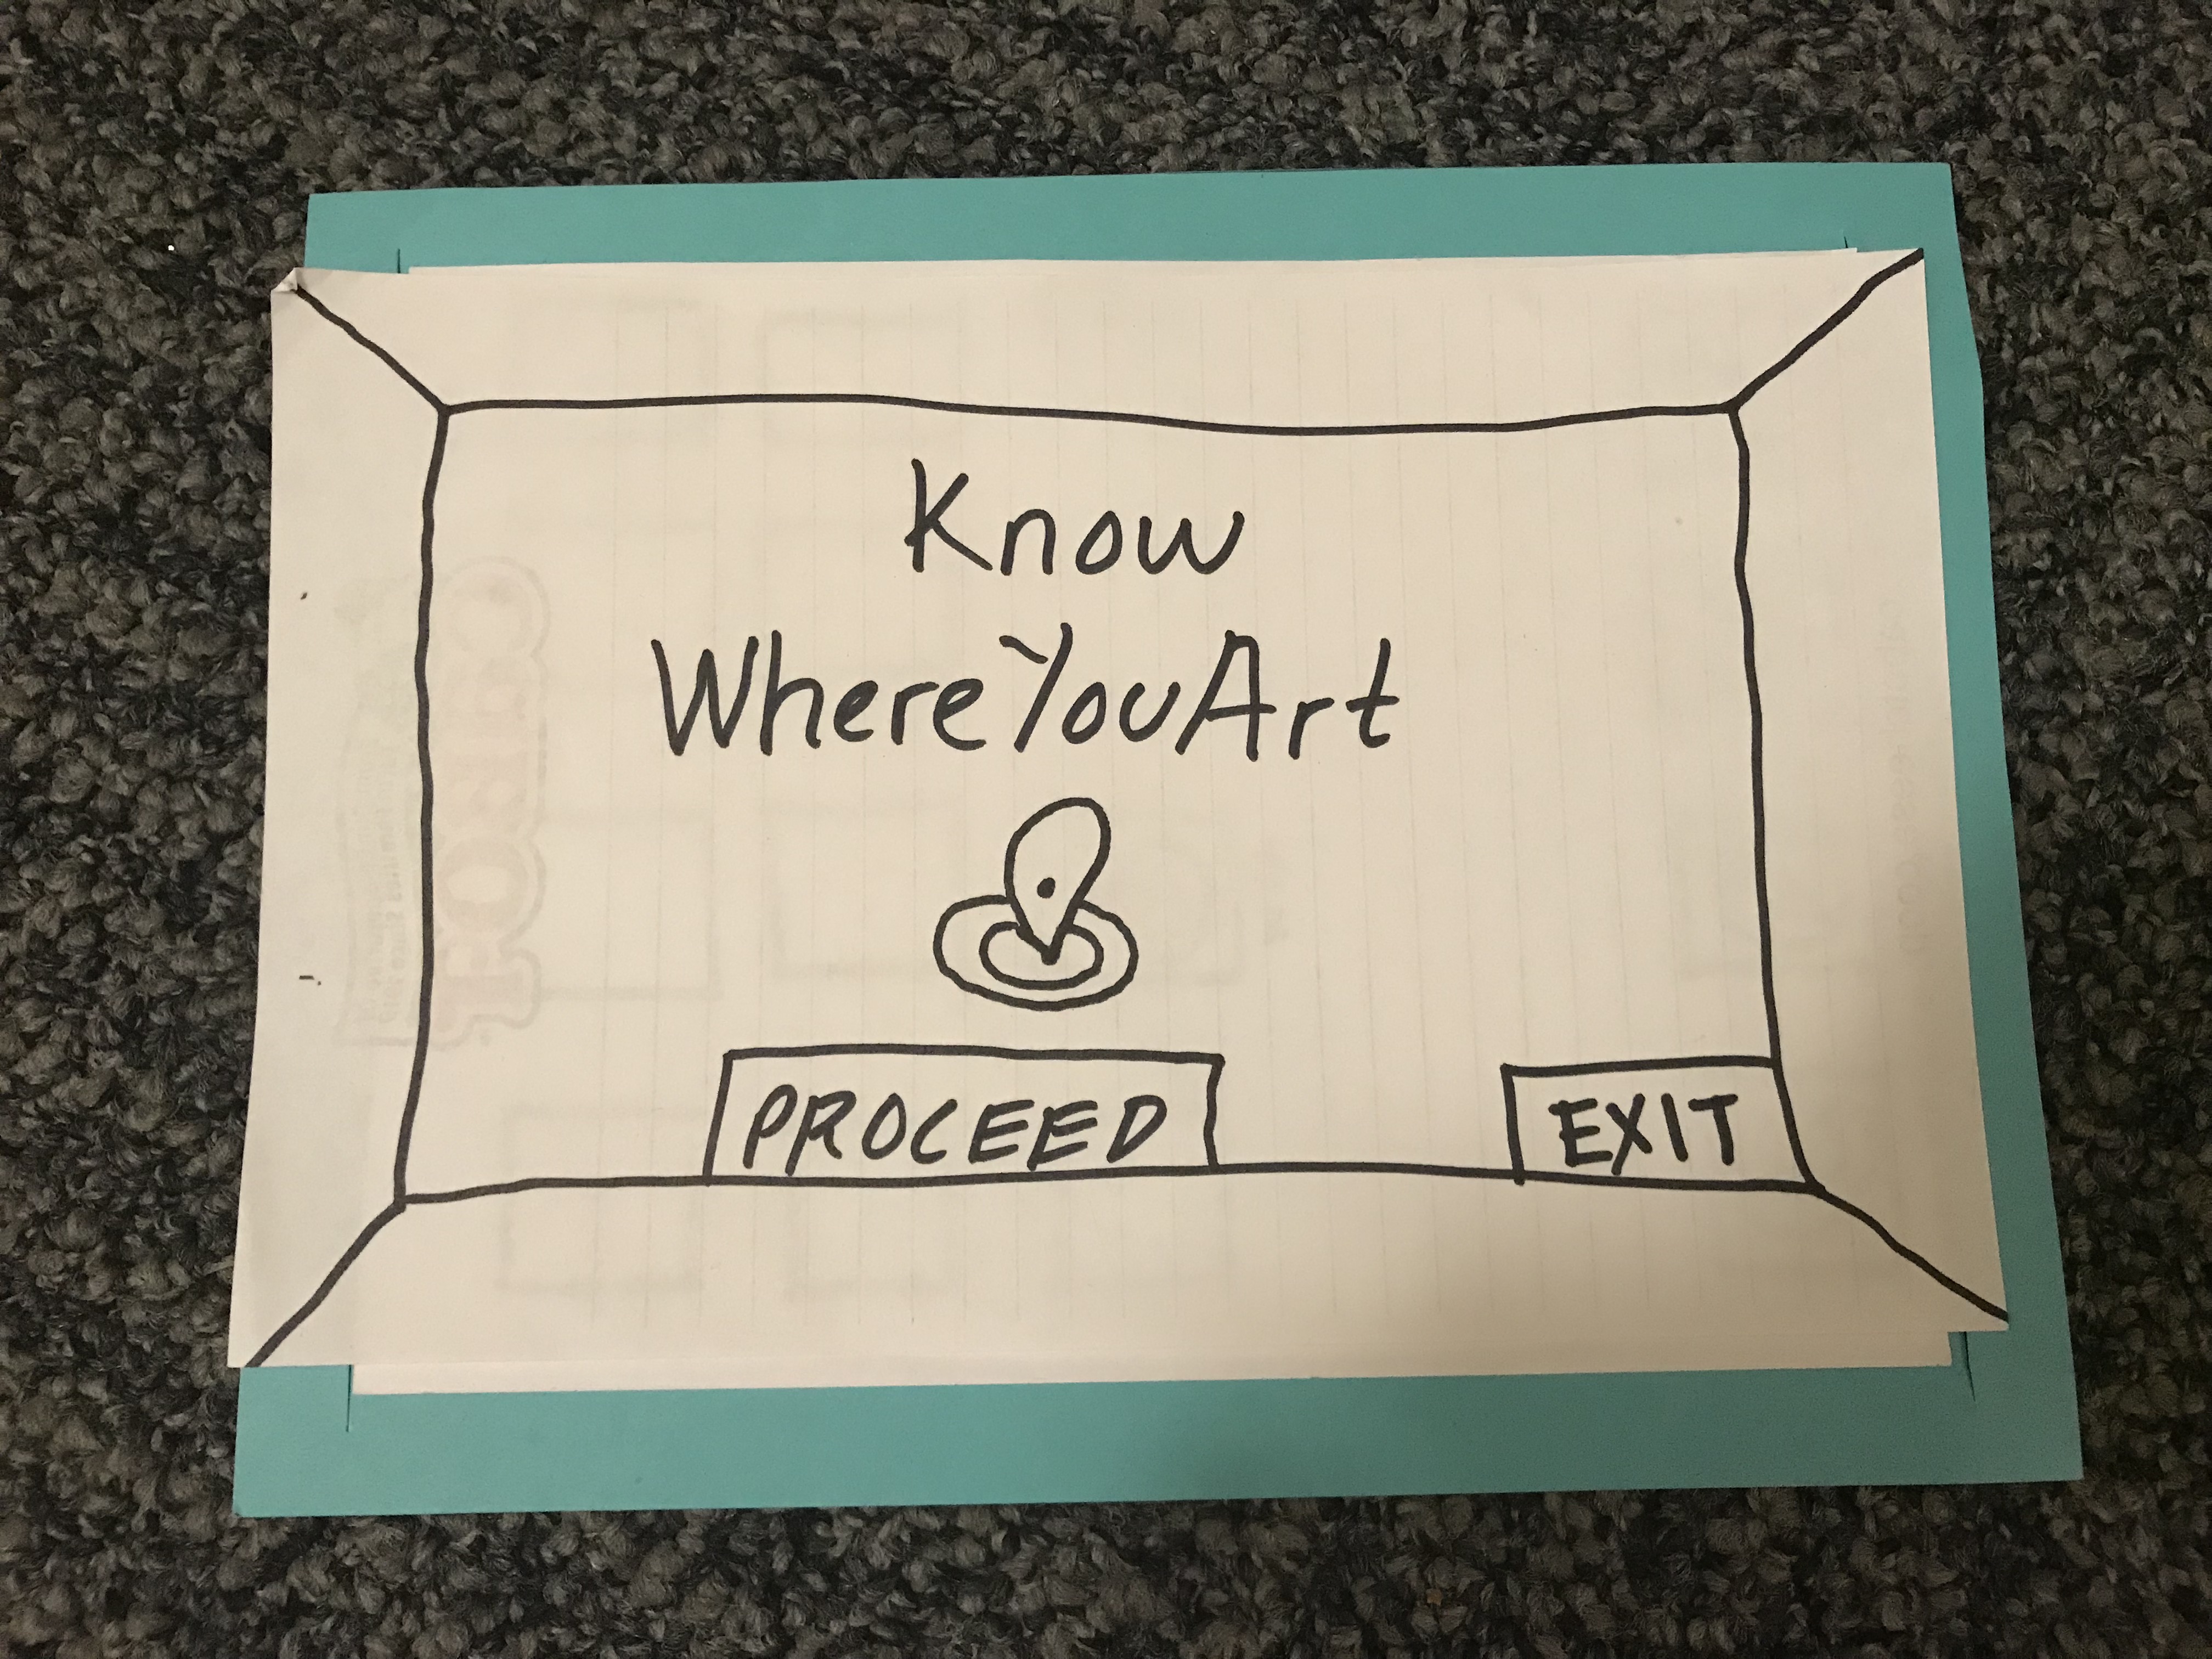 Know
WhereYouArt
PROCEED
EXIT